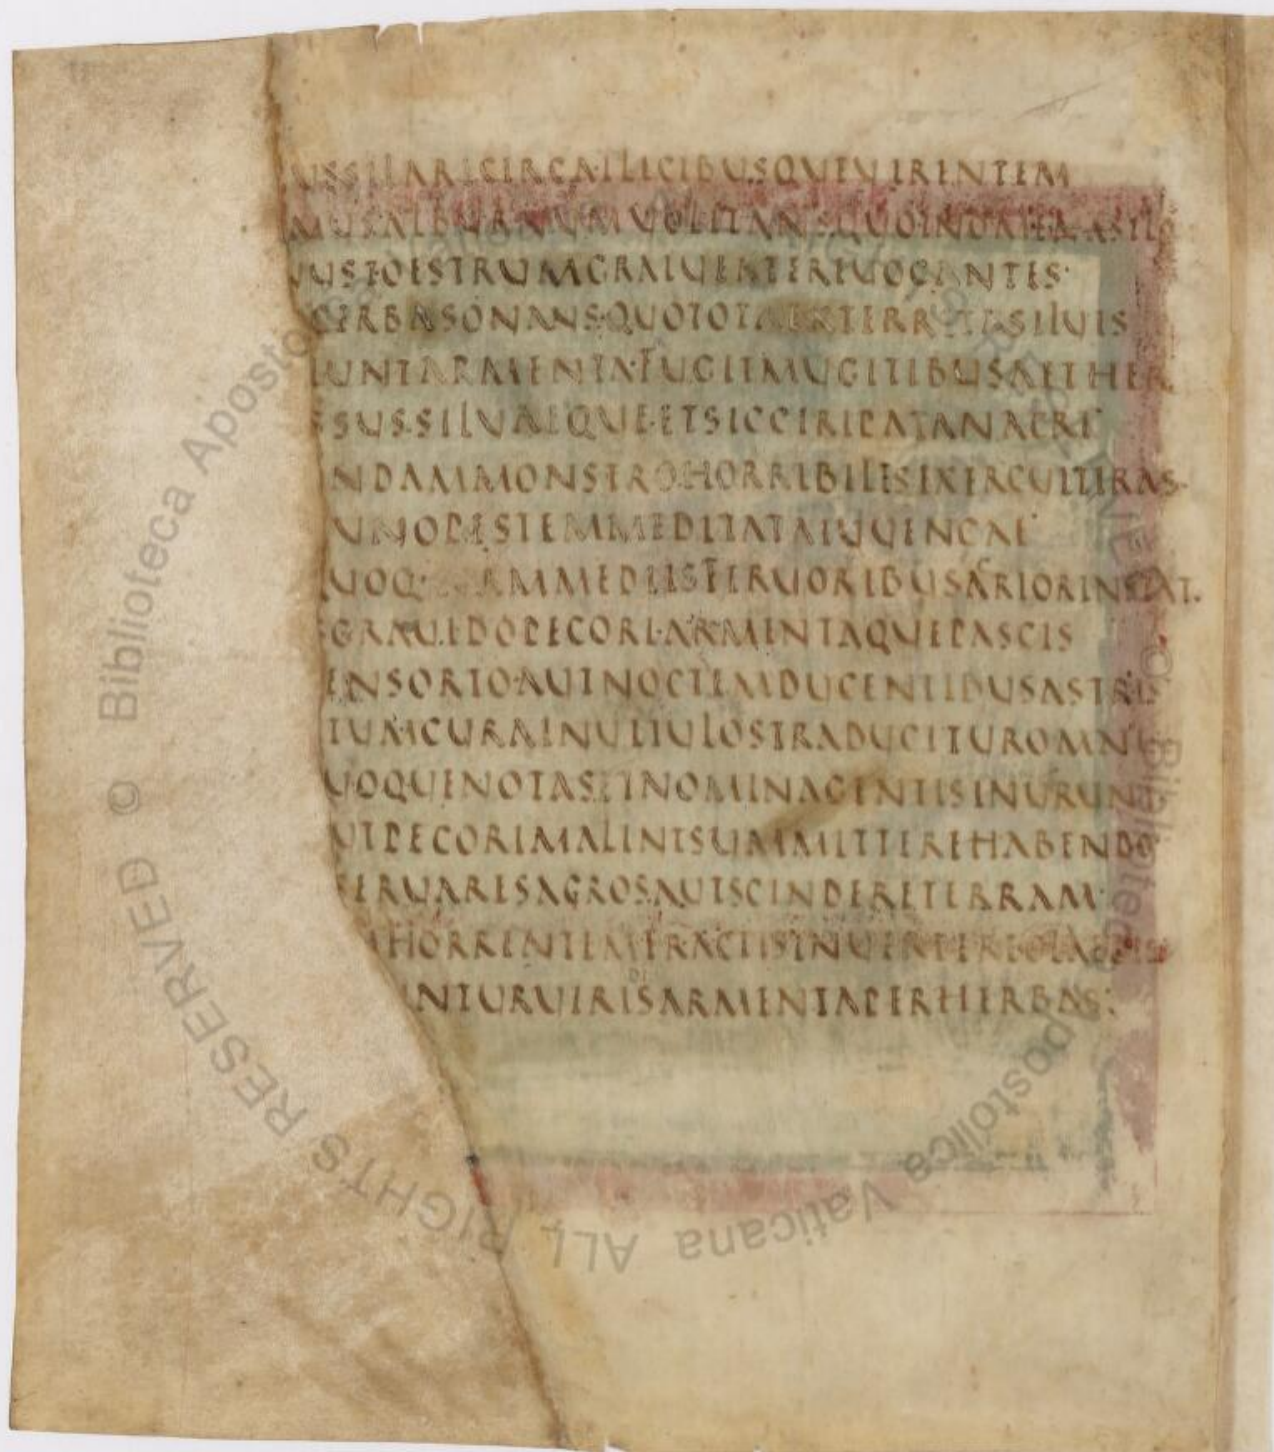 USSILARICIRCA·ILICIBUSQUEUIRENTEM
MUSALBURNUMUOLITANSQUOINOMENASILO
USTOESTRUMGRAIUERTEREUOCANTES·
CERBASONANS·QUOTOTAEXTERRITASILUIS
UNTARMENTA·FUGITMUGITIBUSAETHER
SSUS·SILUAEQUE·ETSICCIRIPATANAGRI
NDAMMONSTRO·HORRIBILESEXERCUITIRAS·
UNOPESTEMMEDITATAIUUENCAE
UOQ· MMEDIISFERUORIBUSACRIORINSTAT·
GRAUEDOPECORI·ARMENTAQUEPASCIS
ENSORTO·AUTNOCTEMDUCENTIBUSASTRIS
TUMCURAINUITULOSTRADUCITUROMNIS
UOQUENOTASETNOMINAGENTISINURUN
UTPECORIMALINTSUMMITTEREHABENDO
SERUARESAGROSAUTSCINDERETERRAM·
HORRENTEMFRACTISINUERTEREGLAEBIS
UNTURUIRIDISARMENTAPERHERBAS·
© Biblioteca Apostolica Vaticana ALL RIGHTS RESERVED